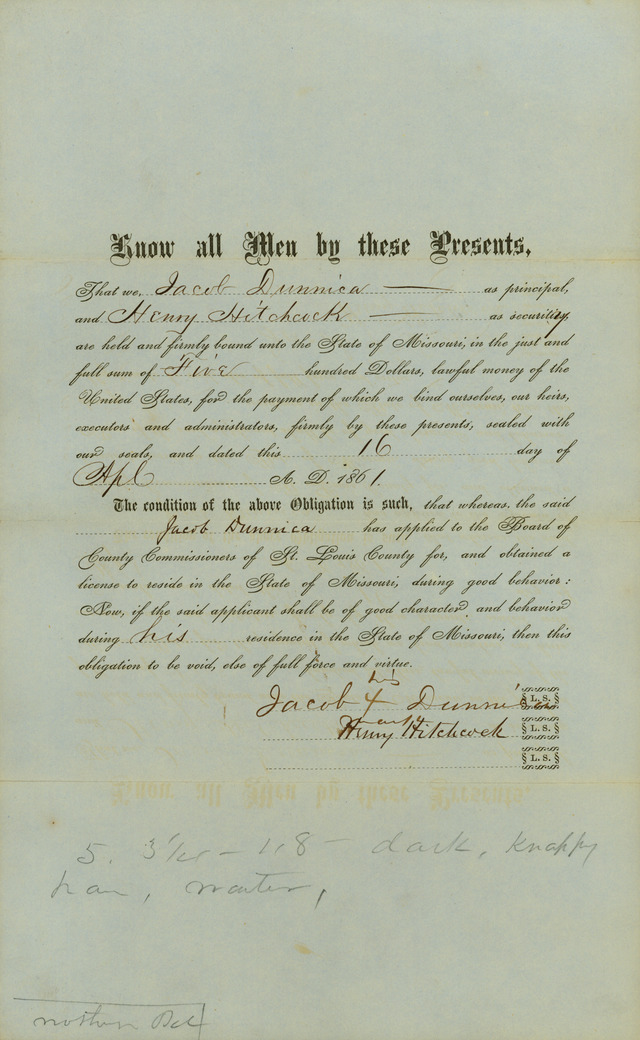 Know all Men by these Presents,
That we, Jacob Dunnica as principal,
and Henry Hitchcock as security,
are held and firmly bound unto the State of Missouri, in the just and
full sum of Five hundred Dollars, lawful money of the
United States, for the payment of which we bind ourselves, our heirs,
executors and administrators, firmly by these presents, sealed with
our seals, and dated this 16 day of
Apl A. D. 1861.
The condition of the above Obligation is such, that whereas, the said
Jacob Dunnica has applied to the Board of
County Commissioners of St. Louis County for, and obtained a
license to reside in the State of Missouri, during good behavior:
Now, if the said applicant shall be of good character and behavior
during his residence in the State of Missouri, then this
obligation to be void, else of full force and virtue.
his
Jacob X Dunnica L. S.
mark
Henry Hitchcock L. S.
L. S.
5. 118 - dark, Knappy